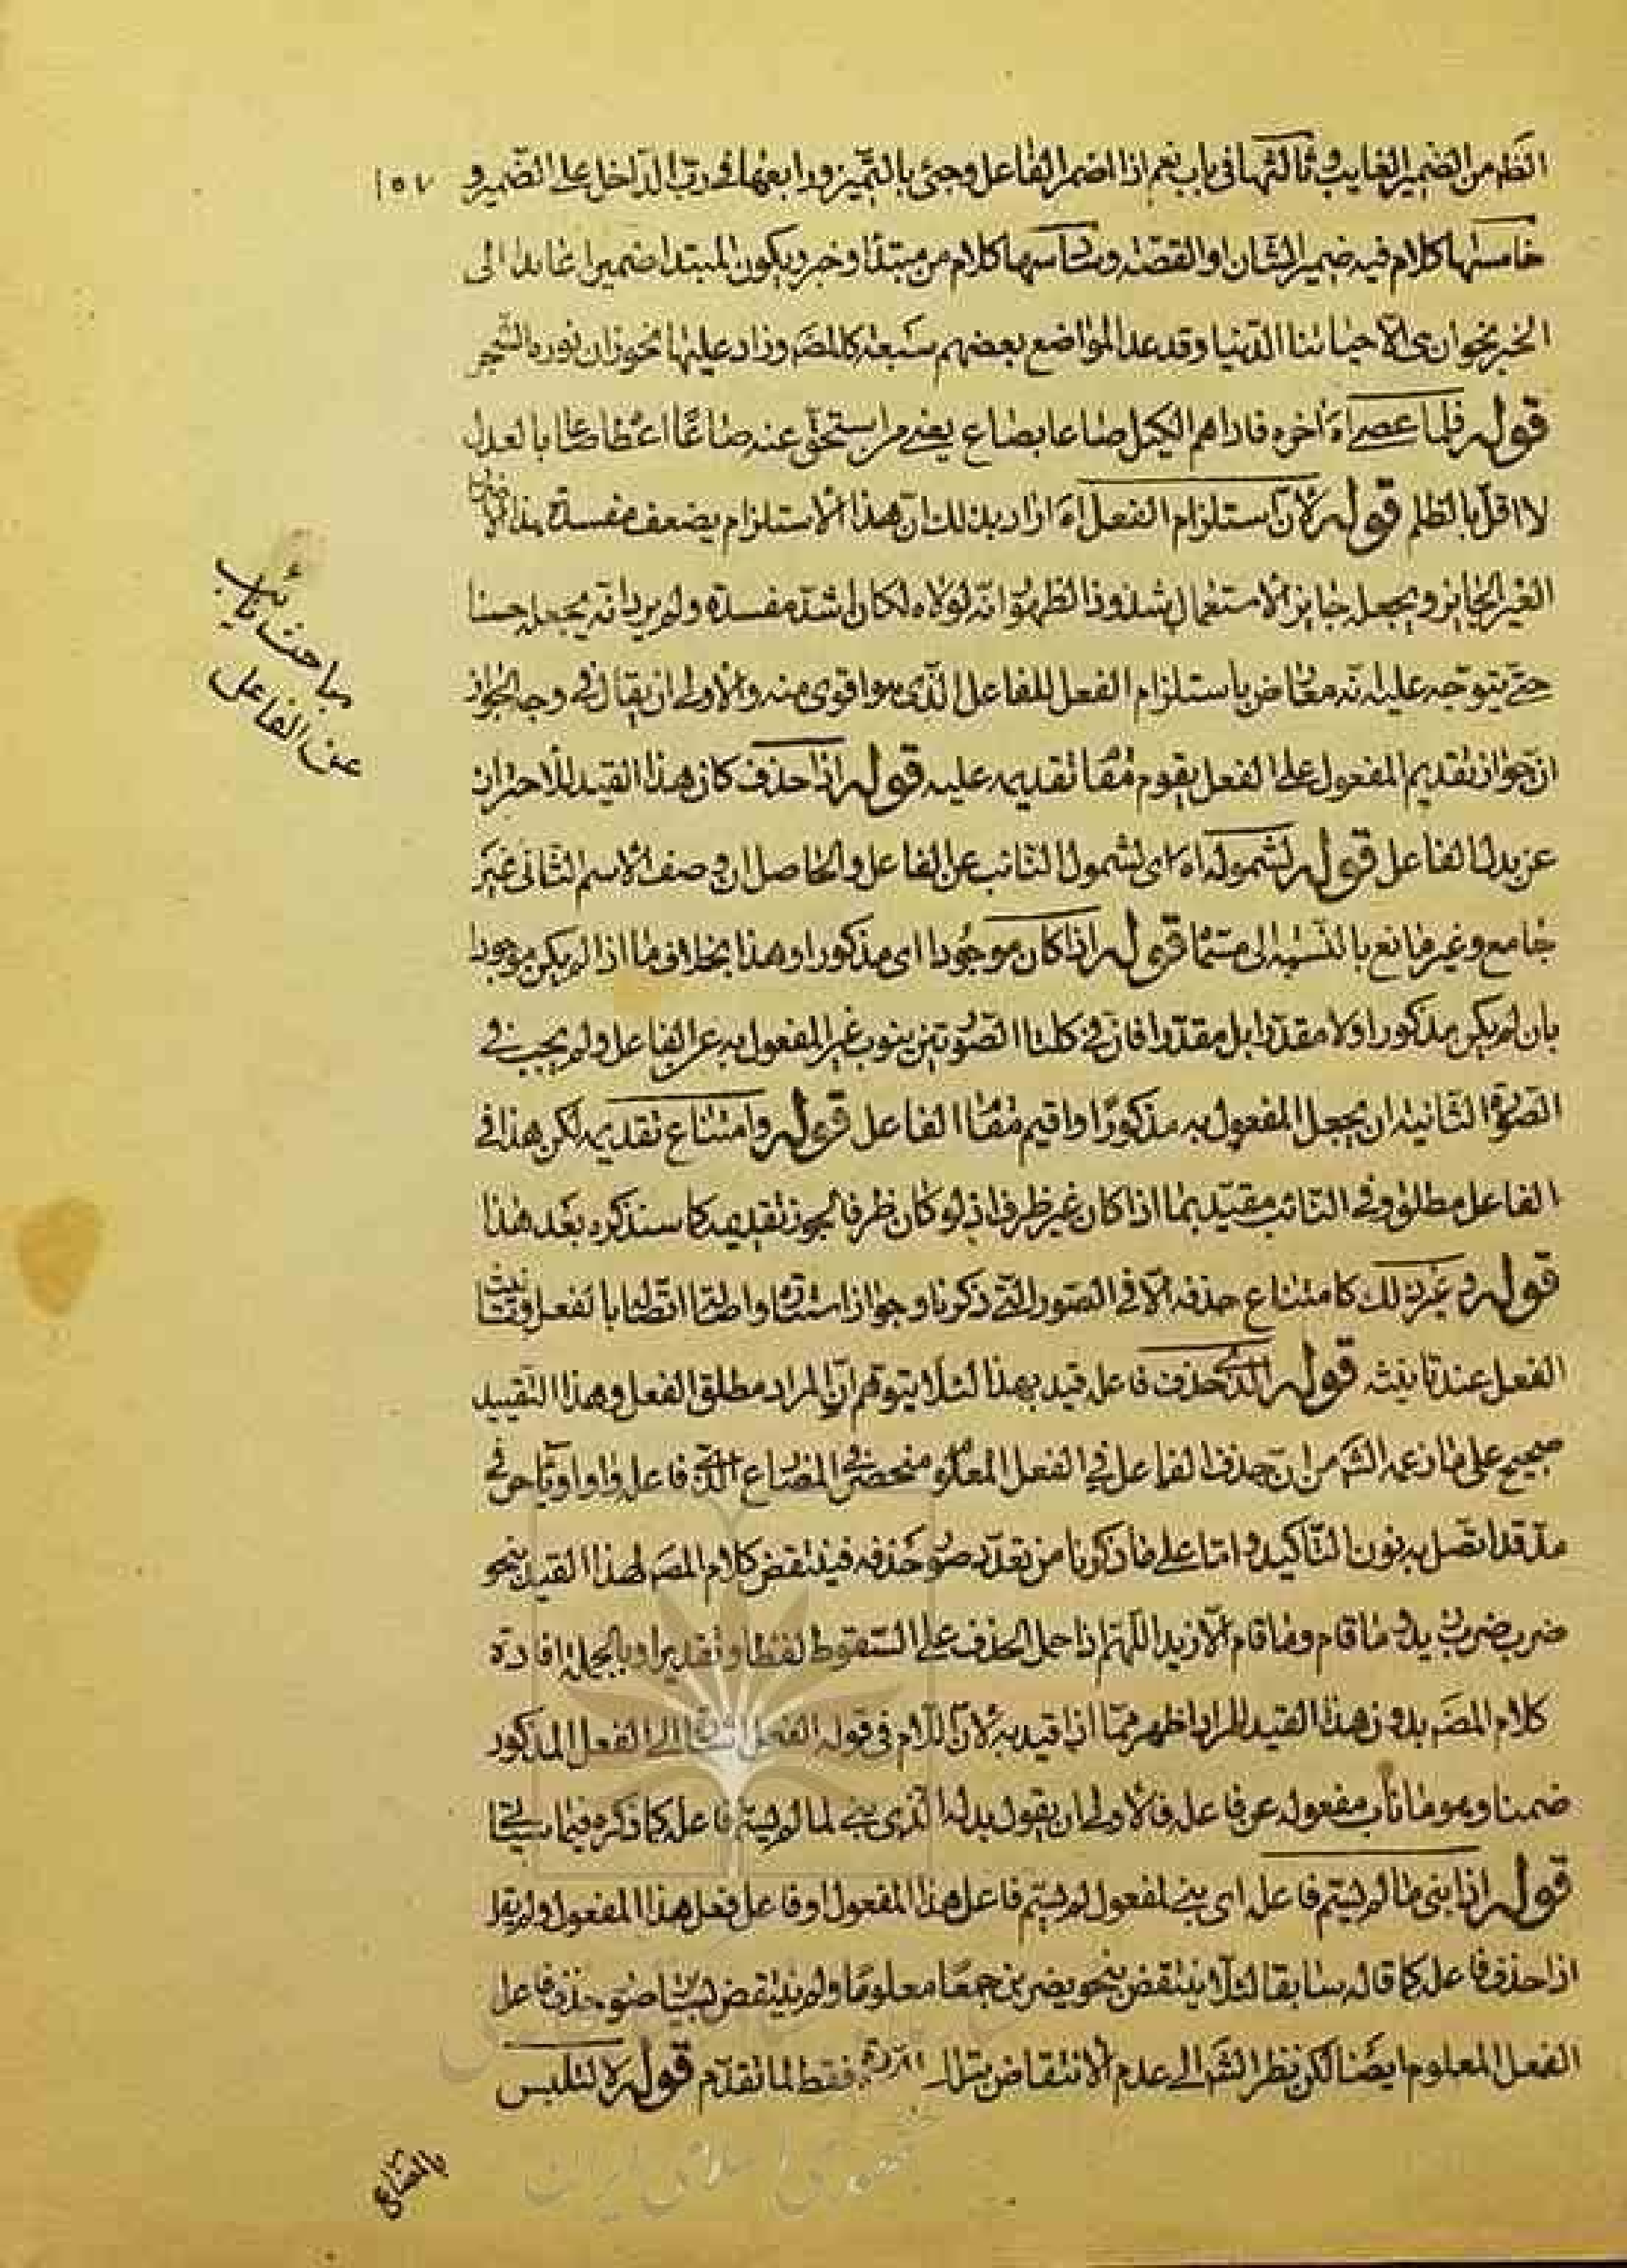 الظاهر من الضمير الغايب وثالثها فى باب نعم اذا اضمر الفاعل وجئى بالتميز ورابعها فى ربّ الداخل على الضمير و
خامستها كلام فيه ضمير الشان او القصّة وسادسها كلام من مبتدأ وخبر ويكون المبتدا ضميرا عائدا الى
الخبر نحو ان هى الّا حياتنا الدّنيا وقد عد المواضع بعضهم سبعة كالمصَ وزاد عليها نحو زان نوره الشجر
قوله فلما عصى اه اخره فاداهم الكيل صاعا بصاع يعنى من استحق عنه صاعًا اعطا صاعا بالعدل
لا اقل بالظلم قوله لانّ استلزام الفعل اه اراد بذلك ان هذا الاستلزام يضعف مفسدة هذا
الغير الجايز ويجعله جايز الاستعمال بشذوذ لظهور انّه لولاه لكان اشد مفسدة ولم يرد انّه يجعله حسنا
حتّى يتوجّه عليه انّه معارض باستلزام الفعل للفاعل الّذى هو اقوى منه والاولى ان يقال فى وجه الجواز
انّ جواز تقديم المفعول على الفعل يقوم مقام تقديمه عليه قوله اذا حذف كان هذا القيد للاحتراز
عن بدل الفاعل قوله لشموله اه اى لشمول النائب عن الفاعل والحاصل ان وصف الاسم الثّانى غير
جامع وغير مانع بالنّسبة الى قوله اذا كان موجودا اى مذكورا وهذا بخلاف ما اذا لم يكن موجودا
بان لم يكن مذكورا ولا مقدّرا بل مقدّرا فان فى كلتا الصّورتين ينوب غير المفعول به عن الفاعل ولم يجب فى
الصّورة الثّانية ان يجعل المفعول به مذكورًا واقيم مقام الفاعل قوله وامتناع تقديمه لكن هذا فى
الفاعل مطلق وفى النّائب مقيّد بما اذا كان غير ظرف اذ لو كان ظرفا يجوز تقديمه كما سنذكره بعد هذا
قوله وغير ذلك كامتناع حذفه الّا فى الصّور الّتى ذكرنا وجواز استتاره واصالة اتّصاله بالفعل وتانيث
الفعل عند تانيثه قوله الذى حذف فاعله قيد بهذا لئلّا يتوهّم انّ المراد مطلق الفعل وهذا التقييد
صحيح على ما زعمه الشَم من انّ حذف الفاعل فى الفعل المعلوم منحصر فى المضارع الّذى فاعله واو او ياء حرفى
مدّ قد اتّصل به نون التّأكيد وامّا على ما ذكرنا من تعدّد صور حذفه فينتقض كلام المصَ لهذا القيد بنحو
ضرب ضرب زيد وما قام وما قام الّا زيد اللّهمّ اذا حمل الحذف على السّقوط لفظا وتقديرا وبالجملة افادة
كلام المصَ بدون هذا القيد المراد اظهر ممّا اذا قيد به لانّ اللّام فى قوله الفعل اشارة الى الفعل المذكور
ضمنا وهو ما ناب مفعوله عن فاعله فالاولى ان يقول بدله الّذى بنى لما لم يسمّ فاعله كما ذكره فيما سياتى
قوله اذا بنى ما لم يسمّ فاعله اى بنى لمفعول لم يسمّ فاعل هذا المفعول او فاعل فعل هذا المفعول ولم يقل
اذا حذف فاعله كما قاله سابقا لئلّا ينتقض بنحو يضربنّ جمعًا معلومًا ولم ينتقض بساير صور حذف فاعل
الفعل المعلوم ايضًا لكن نظر الشَم الى عدم الانتقاض فقط لما تقدّم قوله لا لتلبس
بالمضارع
مباحث نائب
عن الفاعل
١٥٧